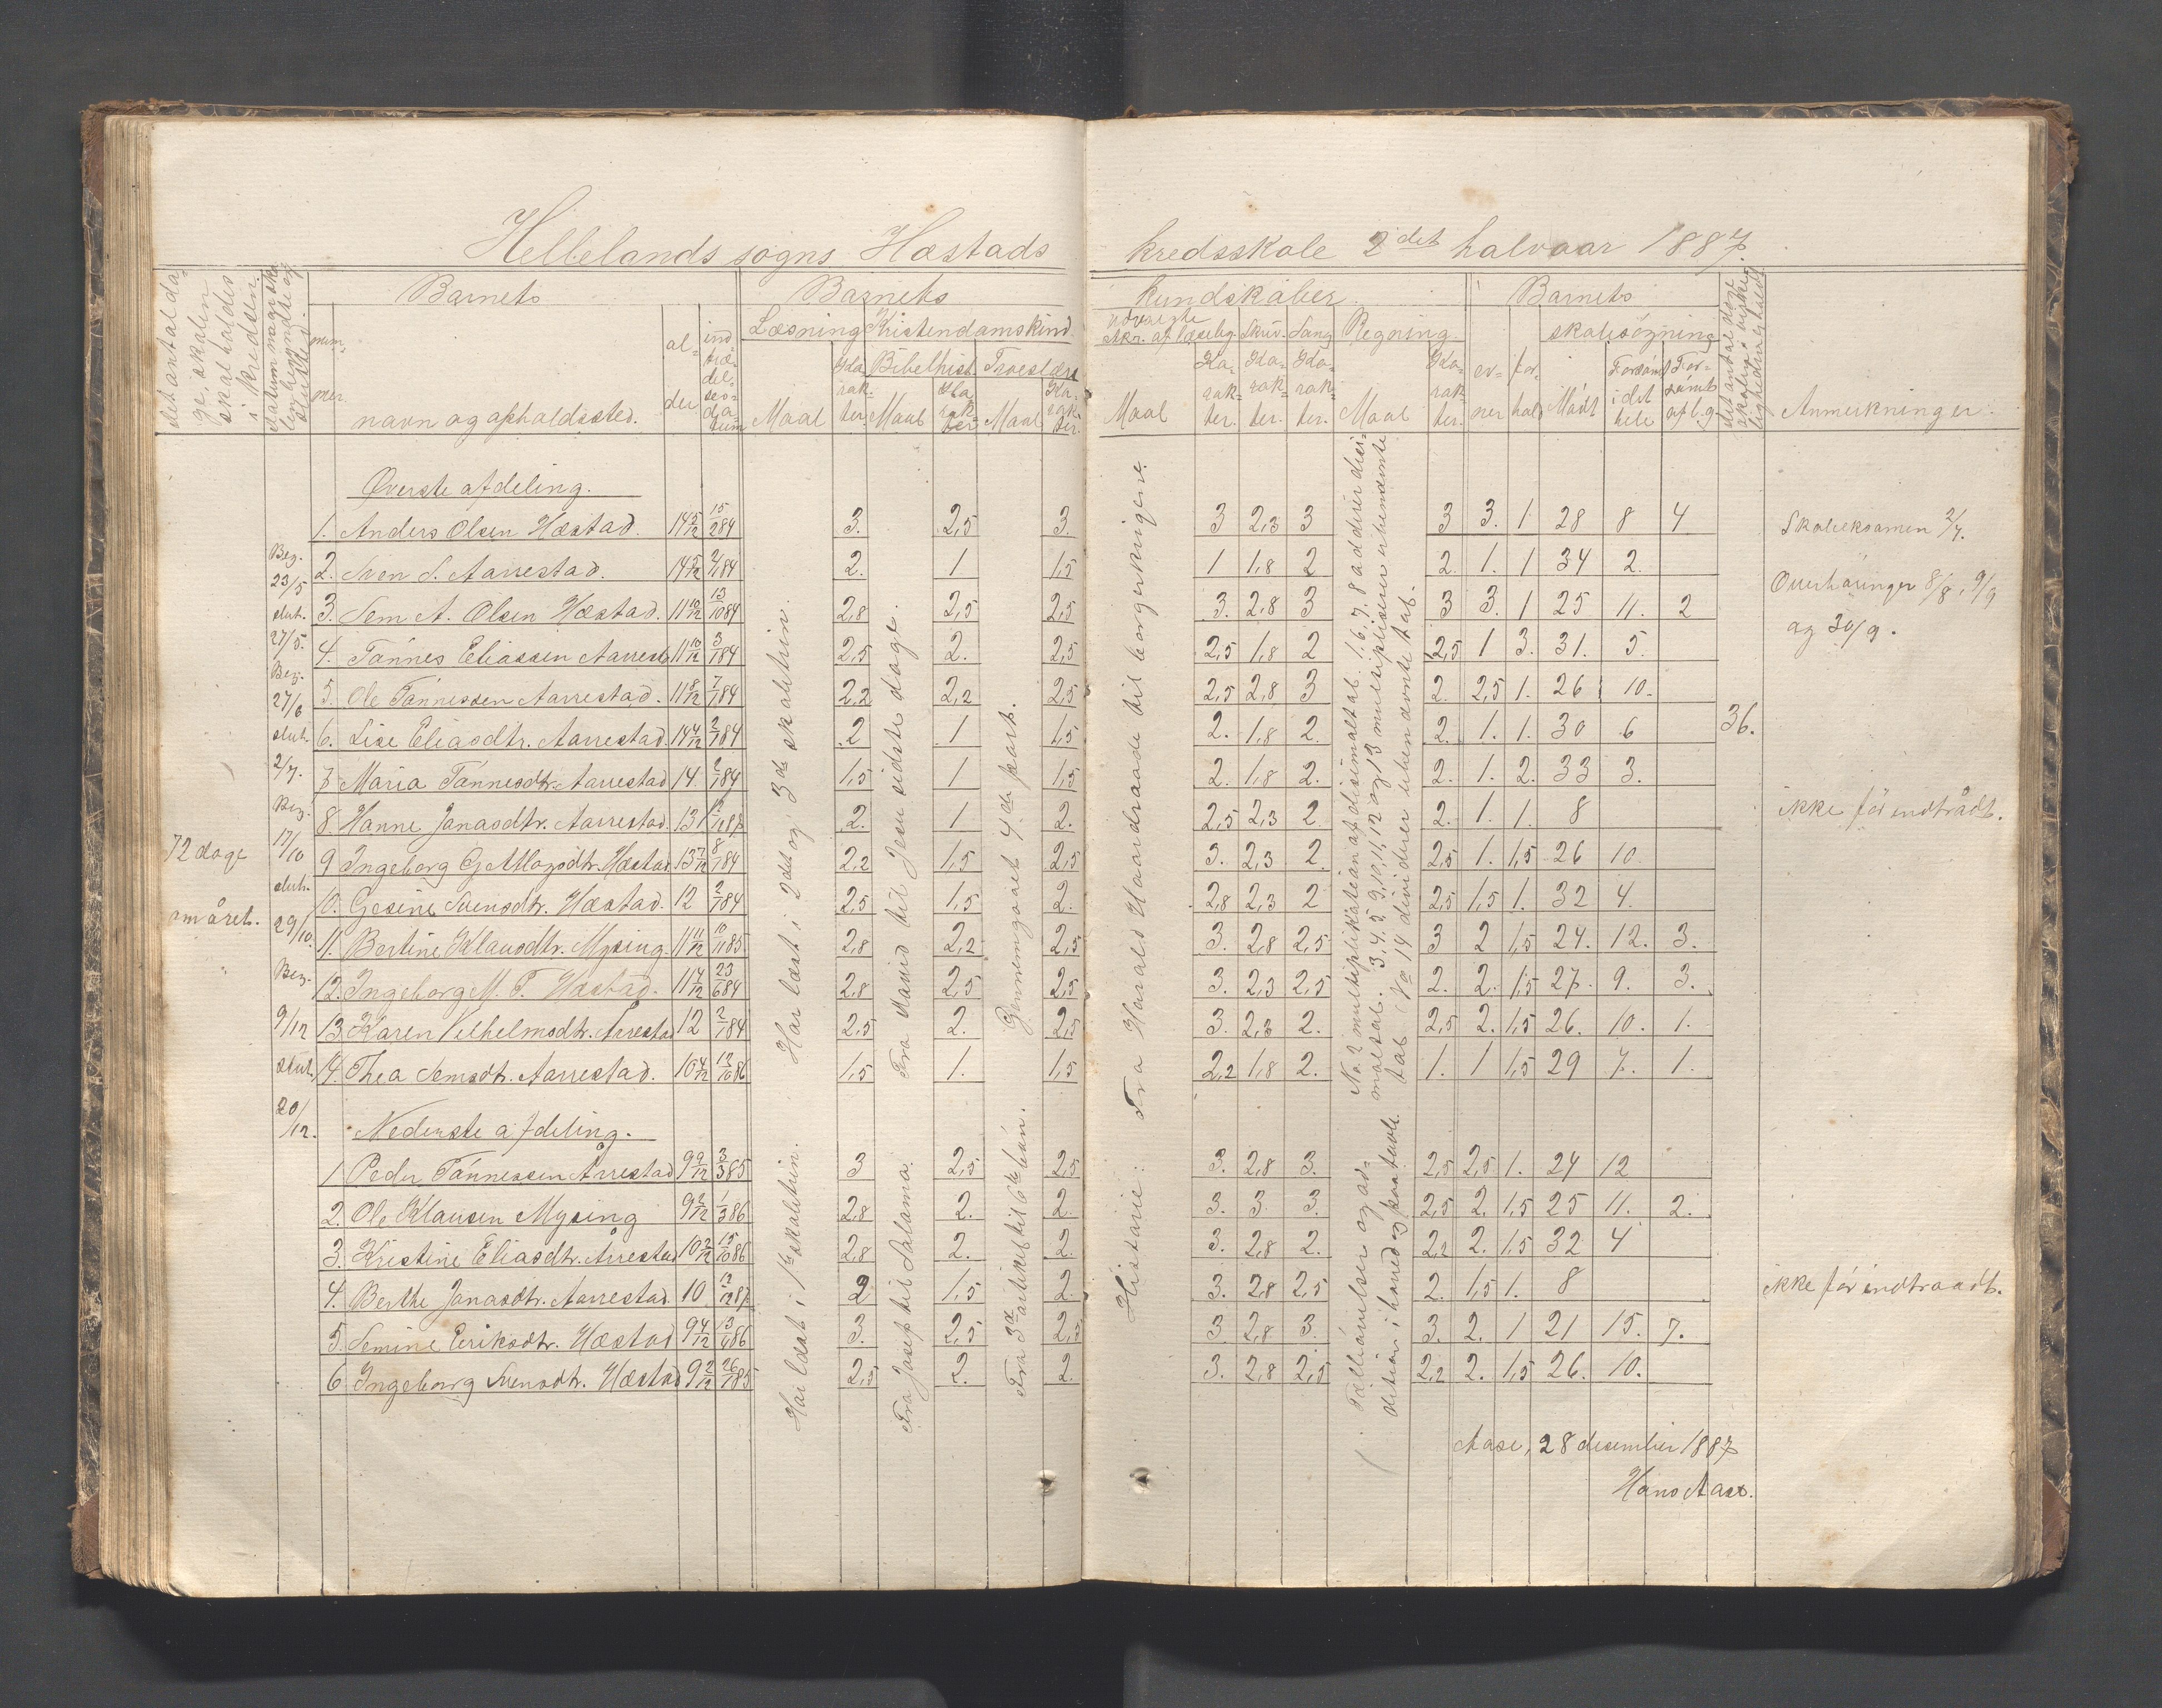 Hellelands sogns Hæstads kredsskole 2det halvaar 1887.
det antal da-
ge, skolen
skal holdes
i kredsen.
Datum naar sko-
len begyndte og
slutted.
num-
mer
Barnets
navn og opholdssted.
al-
der
ind-
træ-
del-
ses-
da-
tum
Barnets
Læsning
Maal
Ka-
rak-
ter.
Kristendomskund.
Bibelhist.
Maal
Ka-
rak-
ter
Troeslære
Maal
Ka-
rak-
ter.
kundskaber
udvalgte
stkr. af læsebog.
Maal
Ka-
rak-
ter.
Skriv.
Ka-
rak-
ter.
Sang
Ka-
rak-
ter.
Regning.
Maal
Ka-
rak-
ter.
Barnets
ev-
ner
for-
hol
skolesøgning
Mødt
Forsømt
i det
hele
For-
sømt
af l. g.
det antal dage
skolen i virke-
ligheden er holdt
Anmerkninger.
Øverste afdeling.
1. Anders Olsen Hæstad. 14 5/12 15/2 84 3. 2,5 3. 3 2,3 3 3 3. 1. 28 8 4 Skoleeksamen 2/7.
2. Sven S. Aarrestad. 14 5/12 2/1 84 2. 1 1,5 1 1,8 2 2. 1. 1 34 2.
3. Sem A. Olsen Hæstad. 11 10/12 13/10 84 2,8 2,5 2,5 3. 2,8 3 3 3. 1 25 11. 2 Overhøringer 8/8, 9/9
og 30/9.
4. Tønnes Eliassen Aarrest 11 10/12 3/1 84 2,5 2. 2,5 2,5 1,8 2 2,5 1 3. 31. 5.
5. Ole Tønnessen Aarrestad. 11 8/12 7/1 84 2,2 2,2 2,5 2,5 2,8 3 2. 2,5 1. 26 10.
6. Lise Eliasdtr. Aarrestad. 14 4/12 2/7 84 2 1 1,5 2. 1,8 2. 2. 1. 1. 30 6 36.
7. Maria Tønnesdtr. Aarrestad 14. 2/7 84 1,5 1 1,5 2. 1,8 2. 2. 1. 2. 33 3.
8. Hanne Jonasdtr. Aarrestad. 13 12/12 87 2. 1 2. 2,5 2,3 2 2. 1. 1. 8 ikke før indtrådt.
9 Ingeborg G. Hæstad. 13 7/12 8/1 84 2,2 1,5 2,5 3. 2,3 2. 2,5 1. 1,5 26 10
10. Gesine Svensdtr. Hæstad. 12 2/7 84 2,5 1,5 2. 2,8 2,3 2 2,5 1,5 1. 32 4.
11. Bertine Klausdtr. Mysing. 11 11/12 10/11 85 2,8 2,2 2,5 3. 2,8 2,5 3 2 1,5 24. 12. 3.
12. Ingeborg M. T. Hæstad. 11 4/12 23/6 84 2,8 2,5 2,5 3. 2,3 2,5 2. 2. 1,5 27. 9. 3.
13. Karen Vilhelmsdtr. Arrestad 12 2/7 84 2,5 2. 2,5 3. 2,3 2. 2,5 2. 1,5 26. 10. 1.
14. Thea Semsdtr. Aarrestad. 10 4/12 12/10 86 1,5 1. 1,5 2,2 1,8 2. 1. 1 1,5 29 7. 1.
72 dage
om året.
Beg.
23/5
slut.
27/5.
Beg.
27/6
slut.
2/7.
Beg.
17/10
slut.
29/10.
Beg.
9/12
slut.
20/12.
Har læst i 2den og 3de skoletrin.
Fra David til Jesu sidste dage.
Gjennemgaaet 4de part.
Historie: Fra Harald Haardraade til borgerkrigene.
No. 2 multiplikation af desimaltal. 1. 6. 7. 8 adderer desi-
maltal. 3. 4. 5. 9, 10, 11, 12 og 13 multipliserer ubenævnte
tal No 14 dividerer ubenævnte tal.
Nederste afdeling.
1 Peder Tønnessen Årrestad 9 9/12 3/3 85 3 2,5 2,5 3. 2,8 3. 2,5 2,5 1. 24 12
2. Ole Klausen Mysing 9 2/12 1/3 86 2,8 2. 2. 3. 3 3. 2,5 2. 1,5 25 11. 2.
3. Kristine Eliasdtr. Årrestad 10 2/12 15/10 86 2,8 2. 2. 3. 2,8 2. 2,2 2. 1,5 32 4
4. Berthe Jonasdtr. Aarrestad. 10 12/12 87 2 1,5 2. 3. 2,8 2,5 2. 1,5 1. 8 ikke før indtraadt.
5. Semine Eriksdtr. Hæstad 9 4/12 13/1 86 3. 2,5 2,5 3. 2,8 3. 3. 2. 1 21 15. 7.
6. Ingeborg Svensdtr. Hæstad 9 2/12 26/1 85 2,5 2. 2. 3. 2,8 2,5 2,2 2. 1,5 26. 10.
Har læst i 1ste skoletrin.
Fra Josef til Salama.
Fra 3die artikel til 6te bøn.
Tælleøvelser og ad-
dition i hoved og paa tavle.
Aase, 28 desember 1887
Hans Aase.